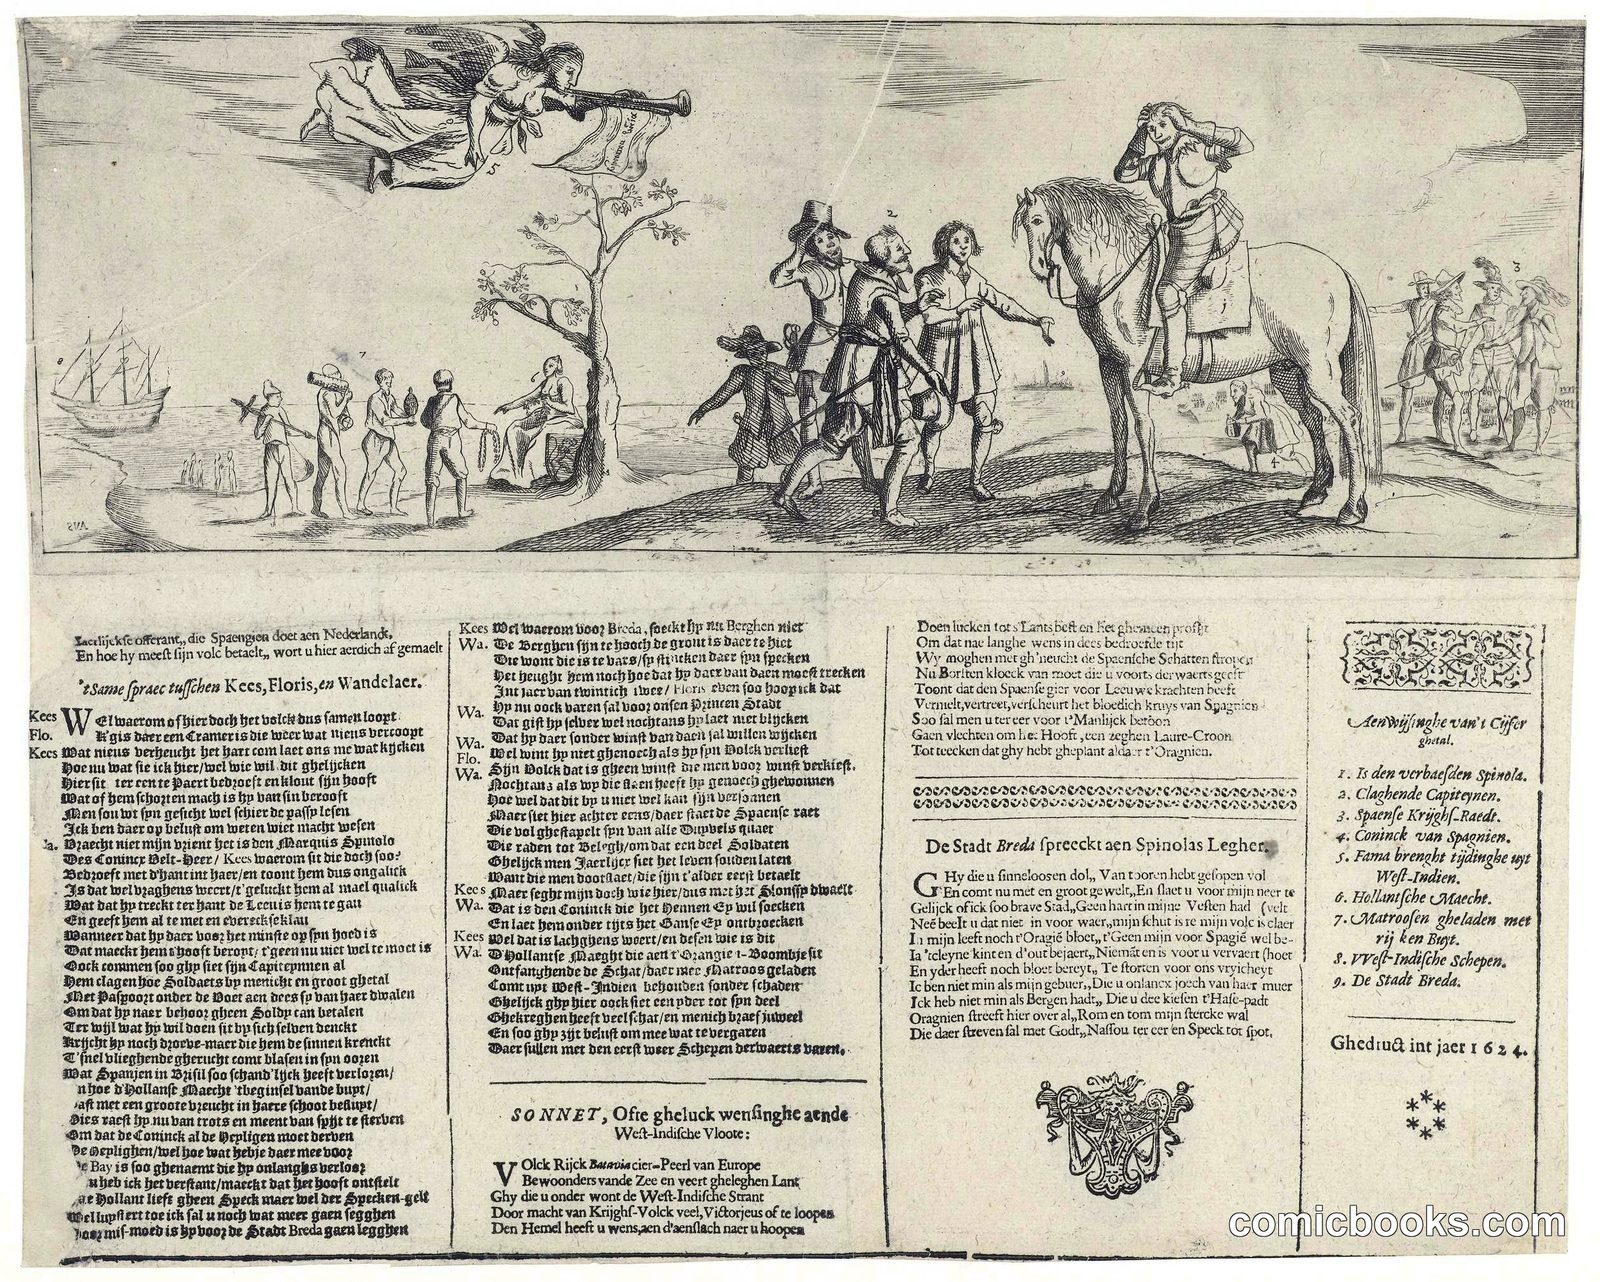 Jaerlijckse offerant,, die Spaengien doet aen Nederlandt,
En hoe hy meest sijn volc betaelt,, wort u hier aerdich af gemaelt
't Same spraec tusschen Kees, Floris, en Wandelaer.
Kees WEl waerom of hier doch het volck dus samen loopt
Flo. K'gis daer een Cramer is die weer wat nieus vercoopt
Kees Wat nieus verheucht het hart com laet ons me wat kijcken
Hoe nu wat sie ick hier/wel wie wil dit ghelijcken
Hier sit ter een te Paert bedroeft en klout sijn hooft
Wat of hem schorten mach is hy van sin berooft
Men sou wt syn gesicht wel schier de passy lesen
Ick ben daer op belust om weten wiet macht wesen
Wa. Vraecht niet mijn vrient het is den Marquis Spinolo
Des Conincx Velt-Heer/ Kees waerom sit die doch soo?
Bedroeft met d'hant int haer/en toont hem dus ongalick
Is dat wel vraghens weert/t'geluckt hem al mael qualick
Wat dat hy treckt ter hant de Leeu is hem te gau
En geeft hem al te met en evereck seklau
Wanneer dat hy daer voor het minste op syn hoed is
Dat maeckt hem t'hooft beroyt/t'geen nu niet wel te moet is
Oock commen soo ghy siet sijn Capiteynnen al
Hem clagen hoe Soldaets by menicht en groot ghetal
Met Paspoort onder de Voet aen dees sy van haer dwalen
Om dat hy naer behoor gheen Soldy can betalen
Ter wijl wat hy wil doen sit by sich selven denckt
Krijcht hy noch droeve-maer die hem de sinnen krenckt
T'snel vlieghende gherucht comt blasen in syn ooren
Wat Spanjen in Brisil soo schand'lijck heeft verloren/
n hoe d'Hollantse Maecht 'tbeginsel vande buyt/
ast met een groote vreucht in haere schoot besluyt/
Dies raest hy nu van trots en meent van spijt te sterven
Om dat de Coninck al de Heyligen moet derven
De Heylighen/wel hoe wat hebje daer mee voor
De Bay is soo ghenaemt die hy onlanghs verloor
u heb ick het verstant/maeckt dat het hooft ontstelt
ae Hollant lieft gheen Speck maer wel der Specken-gelt
Wel luystert toe ick sal u noch wat meer gaen segghen
Voor mis-moed is hy voor de Stadt Breda gaen legghen
Kees Wel waerom voor Breda, soeckt hy nu Berghen niet
Wa. De Berghen sijn te hooch de grout is daer te hiet
Die wont die is te vars/sy stincken daer syn specken
Het heught hem noch hoe dat hy daer van daen moest trecken
Int Jaer van twintich twee/ Floris even soo hoop ick dat
Hy nu oock varen sal voor onsen Princen Stadt
Wa. Dat gist hy selver wel nochtans hy laet niet blijcken
Dat hy daer sonder winst van daen sal willen wijcken
Wa. Wel wint hy niet ghenoech als hy syn Volck verliest
Flo. Sijn Volck dat is gheen winst die men voor winst verkiest.
Wa. Nochtans als wy die slaen heeft hy genoech ghewonnen
Hoe wel dat dit by u niet wel kan sijn versonnen
Maer siet hier achter eens/daer staet de Spaense raet
Die vol ghestapelt syn van alle Duyvels quaet
Die raden tot Belegh/om dat een deel Soldaten
Ghelijck men Jaerlijcx siet het leven souden laten
Want die men doot slaet/die sijn t'alder eerst betaelt
Kees Maer seght mijn doch wie hier/dus met het Slonssy dwaelt
Wa. Dat is den Coninck die het Hennen Ey wil soecken
En laet hem onder tijts het Ganse Ey ontbroecken
Kees Wel dat is lachghens woert/en desen wie is dit
Wa. D'Hollantse Maeght die aen t'Orangie t-Boomtje sit
Ontfanghende de Schat/daer mee Matroos geladen
Comt uyt West-Indien behouden sonder schaden
Ghelijck ghy hier oock siet een yder tot syn deel
Ghekreghen heeft veel schat/en menich braef juweel
En soo ghy zijt belust om mee wat te vergaren
Daer sullen met den eerst weer Schepen derwaerts varen.
SONNET, Ofte gheluck wensinghe aende
West-Indische Vloote:
VOlck Rijck Batavia cier-Peerl van Europe
Bewoonders vande Zee en veert gheleghen Lant
Ghy die u onder wont de West-Indische Strant
Door macht van Krijghs-Volck veel, Victorjeus of te loopen
Den Hemel heeft u wens,aen d'aenslach naer u hoopen
Doen lucken tot s'Lants best en het ghemeen profijt
Om dat nae langhe wens in dees bedroefde tijt
Wy moghen met gh'neucht de Spaensche Schatten stropen
Nu Borsten kloeck van moet die u voorts derwaerts geeft
Toont dat den Spaense gier voor Leeuwe krachten beeft
Vernielt,vertreet,verscheurt het bloedich kruys van Spagnien
Soo sal men u ter eer voor t'Manlijck betoon
Gaen vlechten om het Hooft ,een zeghen Laure-Croon
Tot teecken dat ghy hebt gheplant aldaer t'Oragnien.
De Stadt Breda spreeckt aen Spinolas Legher.
GHy die u sinneloosen dol,, Van tooren hebt gesopen vol
En comt nu met en groot gewelt,,En slaet u voor mijn neer te
Gelijck of ick soo brave Stad,,Geen hart in mijne Vesten had (velt
Neé beelt u dat niet in voor waer,,mijn schut is re mijn volc is claer
In mijn leeft noch t'Oragié bloet,,t'Geen mijn voor Spagié wel be-
Ia 'tcleyne kint en d'out bejaert,,Niemāt en is voor u vervaert (hoet
En yder heeft noch bloet bereyt,, Te storten voor ons vryicheyt
Ic ben niet min als mijn gebuer,,Die u onlancx joech van haer muer
Ick heb niet min als Bergen hadt,, Die u dee kiesen t'Hase-padt
Oragnien streeft hier over al,,Rom en tom mijn stercke wal
Die daer streven sal met Godt,,Nassou ter eer en Speck tot spot,
Aenwijsinghe van't Cijfer
ghetal.
1. Is den verbaesden Spinola.
2. Claghende Capiteynen.
3. Spaense Krijghs-Raedt.
4. Coninck van Spagnien.
5. Fama brenght tijdinghe uyt
West-Indien.
6. Hollantsche Maecht.
7. Matroosen gheladen met
rijcken Buyt.
8. West-Indische Schepen.
9. De Stadt Breda.
Ghedruct int jaer 1624.
comicbooks.com